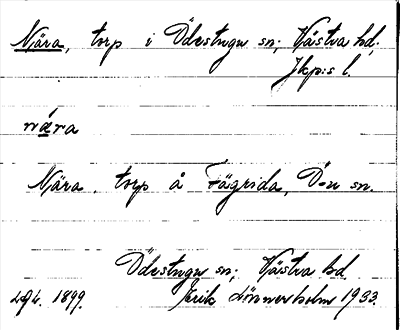 Njära, torp i Ödestugu sn; Västra hd;
Jkp:s l.
nǽra
Njära. torp å Fägrida, Ö-u sn.
Ödestugu sn; Västra hd.
1899. Erik Lönnerholm 1933.